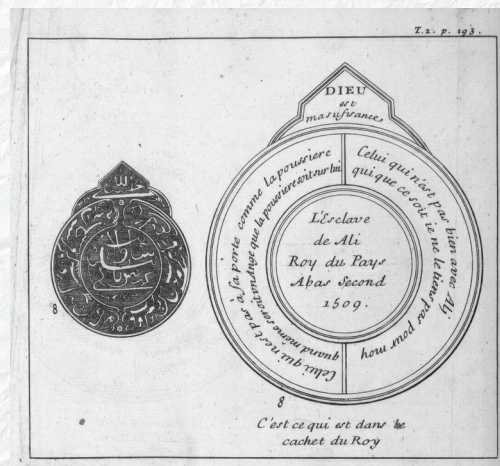 T.2. p. 193.
DIEU
est
masufisance
Celui qui n'est pas bien avec Ali
qui que ce soit ie ne le tiens pas pour moy
Celui qui n'est pas à sa porte comme la poussiere
quand même seroit un Ange que la poussiere soit sur lui
L'Esclave
de Ali
Roy du Pays
Abas Second
1509.
8
8
C'est ce qui est dans le
cachet du Roy